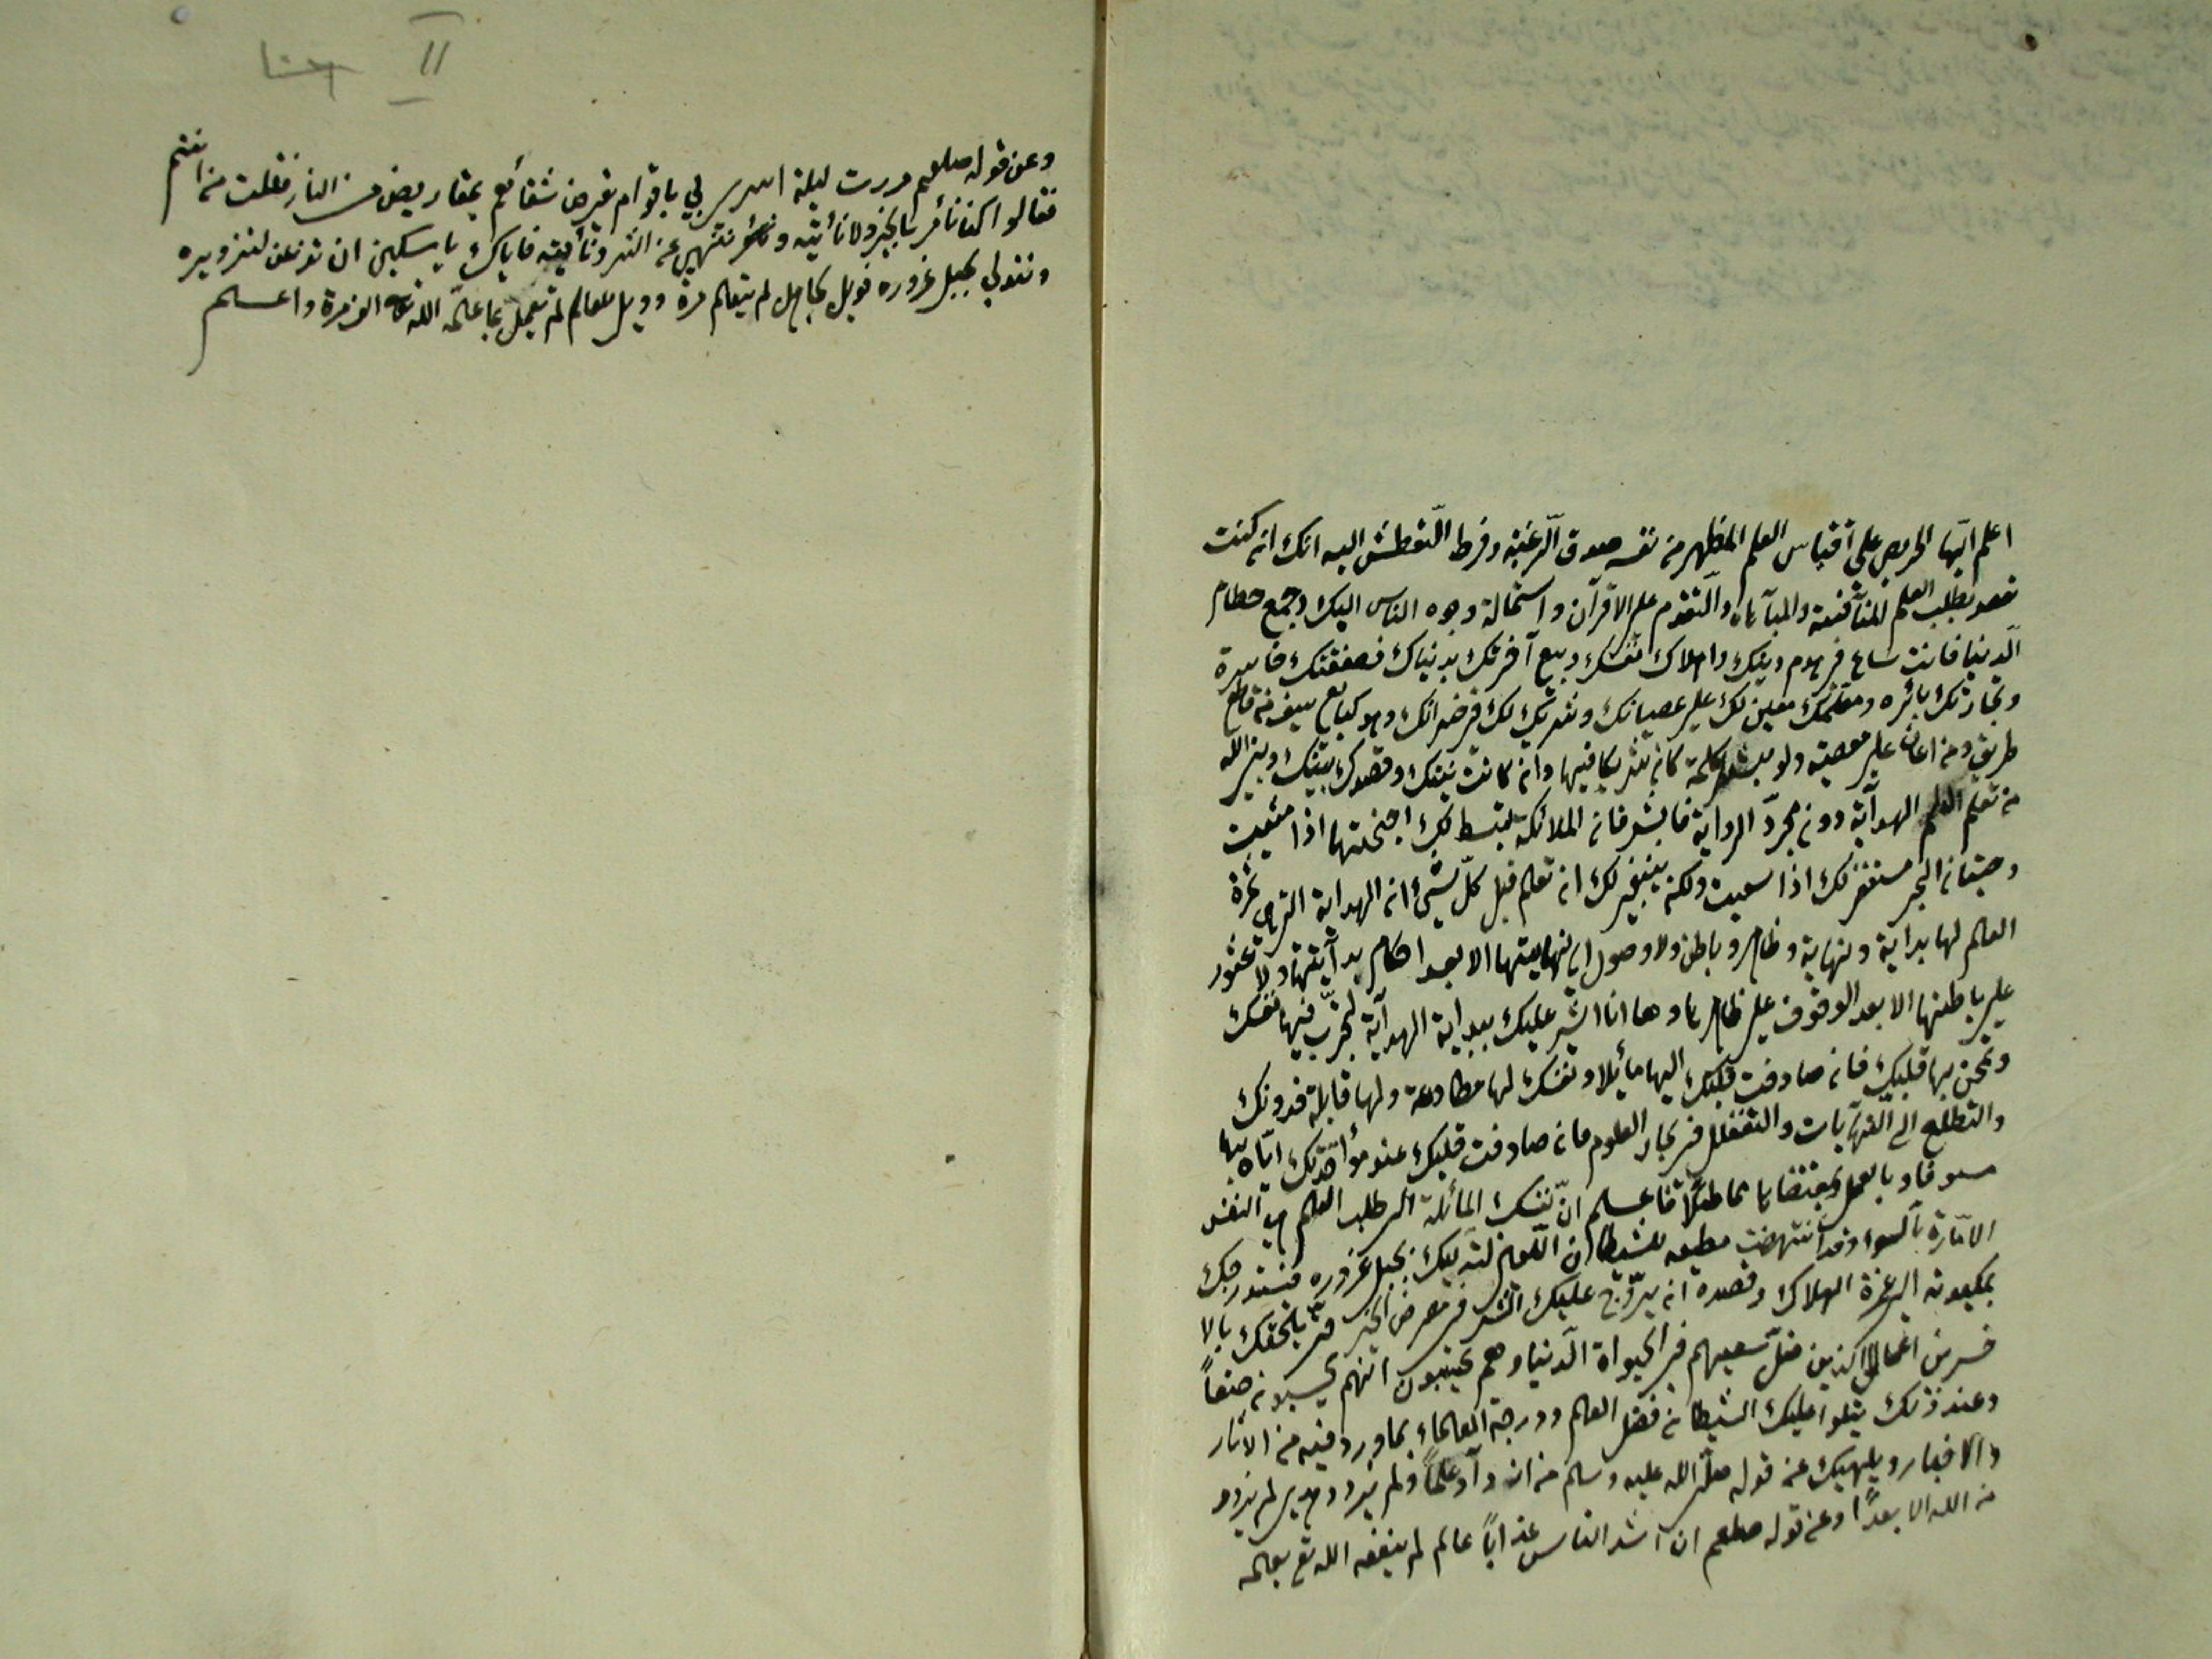 اعلم ايّها الحريص على اقتباس العلم المظهر من نفسه صدق الّرغبة وفرط الّتعطش اليه انك ان كنت
تقصد بطلب العلم المنآفسة والمبآهاه والّتقدم على الاقرآن واستمالة وجوه الناس اليك وجمع حطام
الّدنيا فانت ساع في هدم دينك واهلاك نفسك وبيع آخرتك بدنياك فصفقتك خاسرة
وتجارتك بائره ومعلمك معين لك على عصيانك وشريك لك في خسرانك وهو كبايع سيف من قاطع
طريق ومن اعان على معصية ولو بشطر كلمة كان شريكا فيها وان كانت نيتك وقصدك بينك وبين الله
من تعلم العلم الهدآية دون مجرّد الرواية فابشر فان الملائكة تبسط لك اجنحتها اذا مشيت
وحيتان البحر تستغفر لك اذا سعيت ولكن ينبغي لك ان تعلم قبل كلّ شئ ان الهداية التي هي ثمرة
العلم لها بداية ونهاية وظاهر وباطن ولا وصول الى نهايتها الا بعد احكام بدآيتها ولا عثور
على باطنها الا بعد الوقوف على ظاهرها وها انا اشير عليك ببداية الهدآية لتجرّب فيها نفسك
وتمحن بها قلبك فان صادفت قلبك اليها مائلا ونفسك لها مطاوعة ولها قابلة فدونك
والتطلع الى النهآيات والتغلغل في بحار العلوم فان صادفت قلبك عند مواجهتك ايّاه بها
مسوفا وبالعمل بمقتضاها مماطلًا فاعلم انّ نفسك المائلة الى طلب العلم هي النفس
الامّارة بآلسوء وقد آنتهضت مطيعه للشيطان اللّعين لتدليك بحبل غروره فتستدرجك
بمكيدته الى غمرة الهلاك وقصده ان يروّج عليك الشر في معرض الخير حتى يلحقك بالا
خسرين اعمالا الذين ضلّ سعيهم في الحيواة الّدنيا وهم يحسبون انهم يحسنون صنعاً
وعند ذلك يتلوا عليك الشيطان فضل العلم ودرجة العلماء بما ورد فيه من الاثار
والاخبار ويلهيك عن قوله صلّى الله عليه وسلم من ازدآد علماً ولم يزدد هدى لم يزدد
من الله الا بعدًا وعن قوله صلعم ان اشد الناس عذاباً عالم لم ينفعه الله تع بعلمه
II
وعن قوله صلعم مررت ليلة اسرى بي باقوام تقرض شفائهم بمقاريض من النار فقلت من انتم
فقالوا كنا نأمر بالخير ولا نأتيه وننهى عن الشر ونأتيه فاياك يا مسكين ان تذعن لتزويره
وتتدلى بحبل غروره فويل لجاهل لم يتعلم مرة وويل لعالم لم يعمل بما علمه الف مرة واعلم